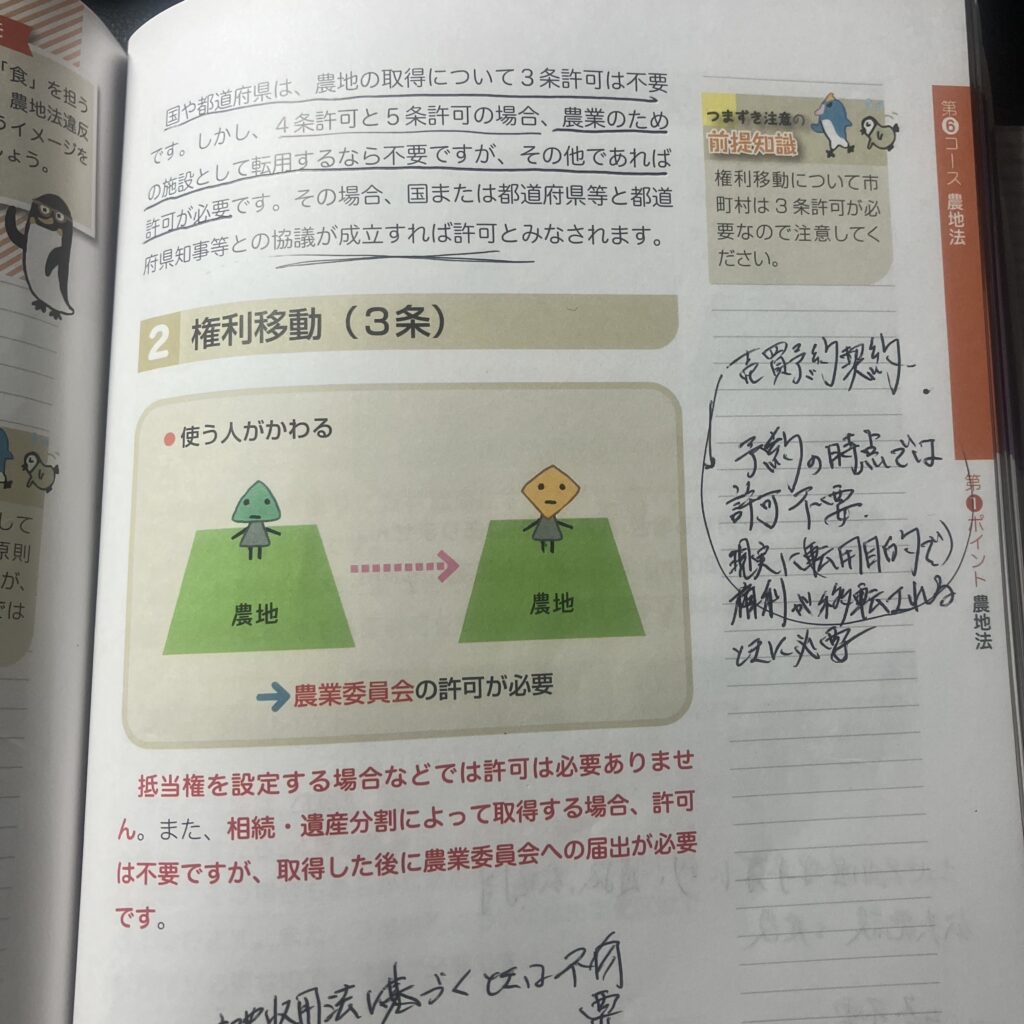 「食」を担う
農地法違反
うイメージを
しょう。
して
原則
が、
では
国や都道府県は、農地の取得について3条許可は不要
です。しかし、4条許可と5条許可の場合、農業のため
の施設として転用するなら不要ですが、その他であれば
許可が必要です。その場合、国または都道府県等と都道
府県知事等との協議が成立すれば許可とみなされます。
2 権利移動（3条）
使う人がかわる
農地
農地
農業委員会の許可が必要
抵当権を設定する場合などでは許可は必要ありませ
ん。また、相続・遺産分割によって取得する場合、許可
は不要ですが、取得した後に農業委員会への届出が必要
です。
収用法に基づくときは不
要
つまずき注意の
前提知識
権利移動について市
町村は3条許可が必
要なので注意してく
ださい。
売買予約契約
予約の時点では
許可不要.
現実に転用目的で
権利が移転される
ときに必要
第6コース 農地法
第1ポイント 農地法